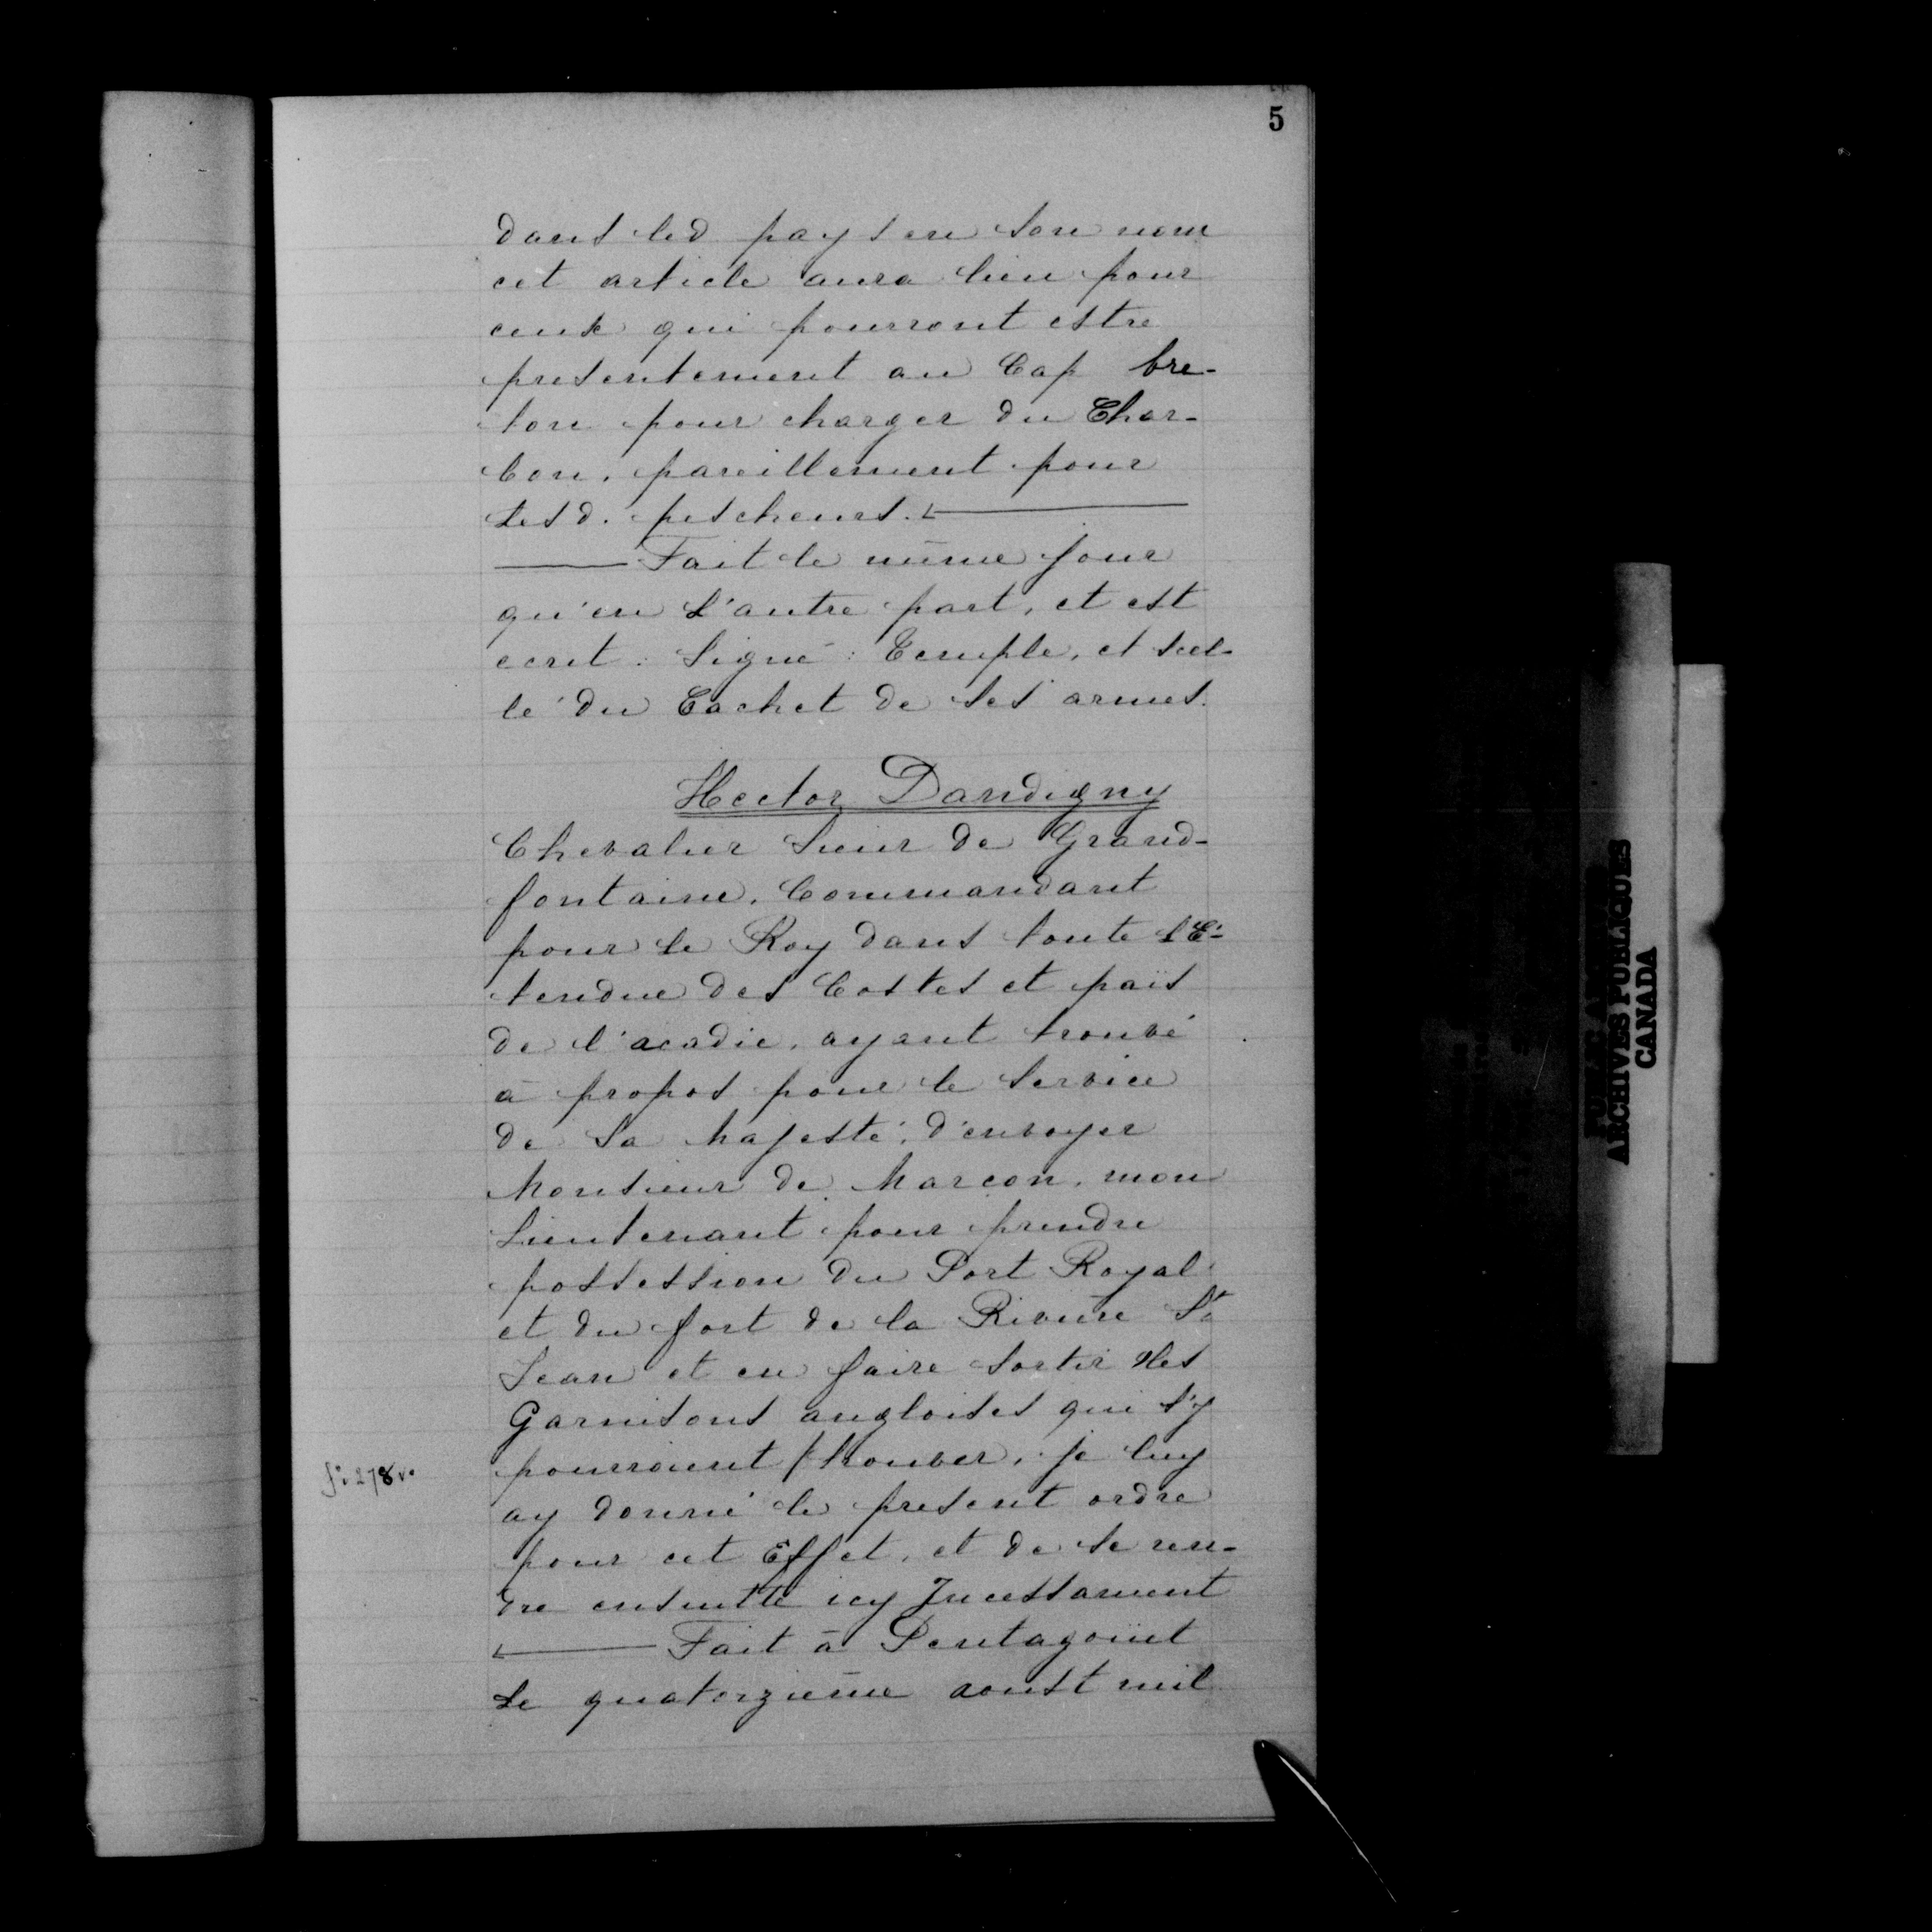 5
dans led pays en son nom
cet article aura lieu pour
ceux qui pourront estre
presentement au Cap bre-
ton pour charger du Char-
bon, pareillement pour
Lesd. pescheurs.
Fait le même jour
qu'en L'autre part, et est
ecrit : Signé : Temple, et scel-
lé du Cachet de Ses armes.
Hector Dandigny
Chevalier Sieur de Grand-
fontaine, Commandant
pour Le Roy dans toute L'E-
tendue des Costes et païs
de l'acadie, ayant trouvé
à propos pour le Service
de Sa Majesté, d'envoyer
Monsieur de Marcon, mon
Lieutenant pour prendre
possession du Port Royal
et du fort de la Rivière St
Jean et en faire sortir Les
Garnisons angloises qui s'y
pourroient / trouver, je luy
fo 278 vo
ay donné le present ordre
pour cet Effet, et de se ren-
dre ensuitte icy Incessament
Fait à Pentagoüet
Le quatorzième aoust mil
ARCHIVES PUBLIQUES
CANADA